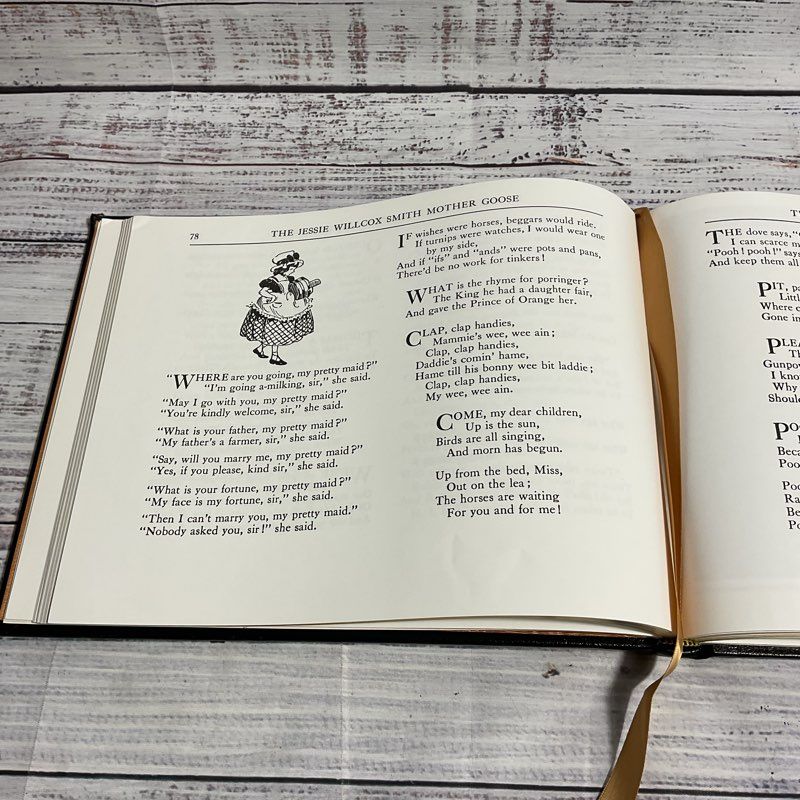 78
THE JESSIE WILLCOX SMITH MOTHER GOOSE
"WHERE are you going, my pretty maid?"
"I'm going a-milking, sir," she said.
"May I go with you, my pretty maid?"
"You're kindly welcome, sir," she said.
"What is your father, my pretty maid?"
"My father's a farmer, sir," she said.
"Say, will you marry me, my pretty maid?"
"Yes, if you please, kind sir," she said.
"What is your fortune, my pretty maid?"
"My face is my fortune, sir," she said.
"Then I can't marry you, my pretty maid."
"Nobody asked you, sir!" she said.
IF wishes were horses, beggars would ride.
If turnips were watches, I would wear one
by my side,
And if "ifs" and "ands" were pots and pans,
There'd be no work for tinkers!
WHAT is the rhyme for porringer?
The King he had a daughter fair,
And gave the Prince of Orange her.
CLAP, clap handies,
Mammie's wee, wee ain;
Clap, clap handies,
Daddie's comin' hame,
Hame till his bonny wee bit laddie;
Clap, clap handies,
My wee, wee ain.
COME, my dear children,
Up is the sun,
Birds are all singing,
And morn has begun.
Up from the bed, Miss,
Out on the lea;
The horses are waiting
For you and for me!
THE dove says,
I can scarce
"Pooh! pooh!" says
And keep them all
PIT,
Littl
Where
Gone in
PLEA
Th
Gunpow
I kno
Why
Shoul
POO
Beca
Poo
Poo
Ra
Be
Po